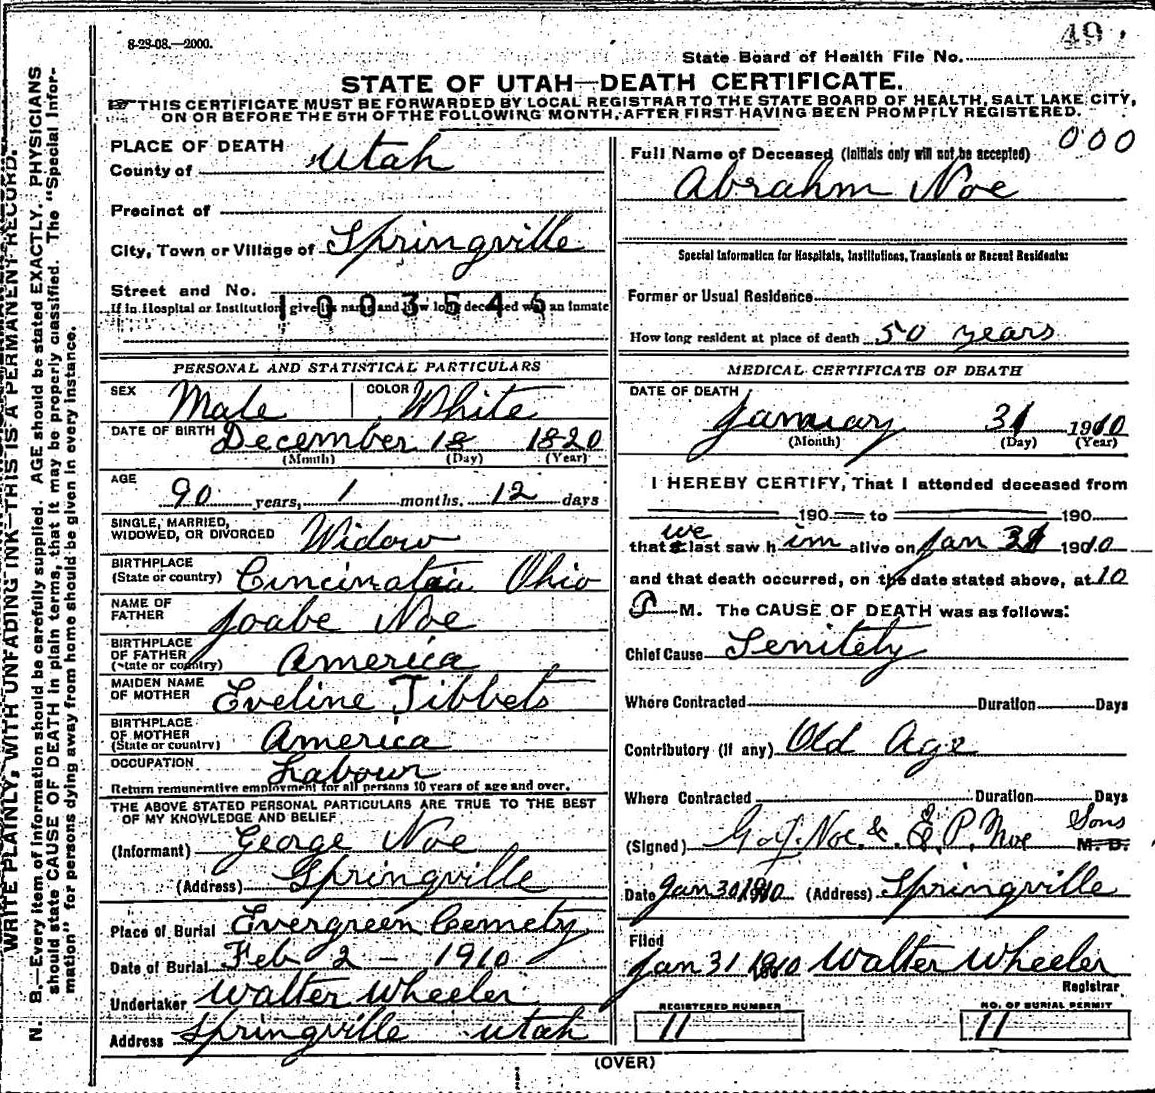 49
8-28-08.—2000.
State Board of Health File No.
STATE OF UTAH—DEATH CERTIFICATE.
THIS CERTIFICATE MUST BE FORWARDED BY LOCAL REGISTRAR TO THE STATE BOARD OF HEALTH, SALT LAKE CITY,
ON OR BEFORE THE 5TH OF THE FOLLOWING MONTH, AFTER FIRST HAVING BEEN PROMPTLY REGISTERED.
WRITE PLAINLY, WITH UNFADING INK—THIS IS A PERMANENT RECORD.
N. B.—Every item of information should be carefully supplied. AGE should be stated EXACTLY. PHYSICIANS
should state CAUSE OF DEATH in plain terms, that it may be properly classified. The "Special Infor-
mation" for persons dying away from home should be given in every instance.
PLACE OF DEATH
County of Utah
Precinct of
City, Town or Village of Springville
Street and No.
1003545
If in Hospital or Institution, give its name and how long deceased was an inmate
PERSONAL AND STATISTICAL PARTICULARS
SEX Male COLOR White
DATE OF BIRTH December 18 1820
(Month) (Day) (Year)
AGE
90 years, 1 months, 12 days
SINGLE, MARRIED,
WIDOWED, OR DIVORCED Widow
BIRTHPLACE
(State or country) Cincinatia Ohio
NAME OF
FATHER Joabe Noe
BIRTHPLACE
OF FATHER
(State or country) America
MAIDEN NAME
OF MOTHER Eveline Tibbets
BIRTHPLACE
OF MOTHER
(State or country) America
OCCUPATION Labour
Return remunerative employment for all persons 10 years of age and over.
THE ABOVE STATED PERSONAL PARTICULARS ARE TRUE TO THE BEST
OF MY KNOWLEDGE AND BELIEF
(Informant) George Noe
(Address) Springville
Place of Burial Evergreen Cemety
Date of Burial Feb 2 - 1910
Undertaker Walter Wheeler
Address Springville Utah
000
Full Name of Deceased (Initials only will not be accepted)
Abrahm Noe
Special Information for Hospitals, Institutions, Transients or Recent Residents:
Former or Usual Residence
How long resident at place of death 50 years
MEDICAL CERTIFICATE OF DEATH
DATE OF DEATH
January 31 1910
(Month) (Day) (Year)
I HEREBY CERTIFY, That I attended deceased from
190 to 190
that we last saw him alive on Jan 31 1910
and that death occurred, on the date stated above, at 10
P M. The CAUSE OF DEATH was as follows:
Chief Cause Senitety
Where Contracted Duration Days
Contributory (if any) Old Age
Where Contracted Duration Days
(Signed) G. J. Noe. & E. P. Noe Sons M. D.
Date Jan 30 1910 (Address) Springville
Filed
Jan 31 1910 Walter Wheeler
Registrar
REGISTERED NUMBER
11
NO. OF BURIAL PERMIT
11
(OVER)